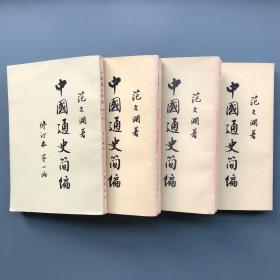 范文澜著
中國通史简编
修订本 第一编
范文澜著
中國通史简编
范文澜著
中國通史简编
范文澜著
中國通史简编